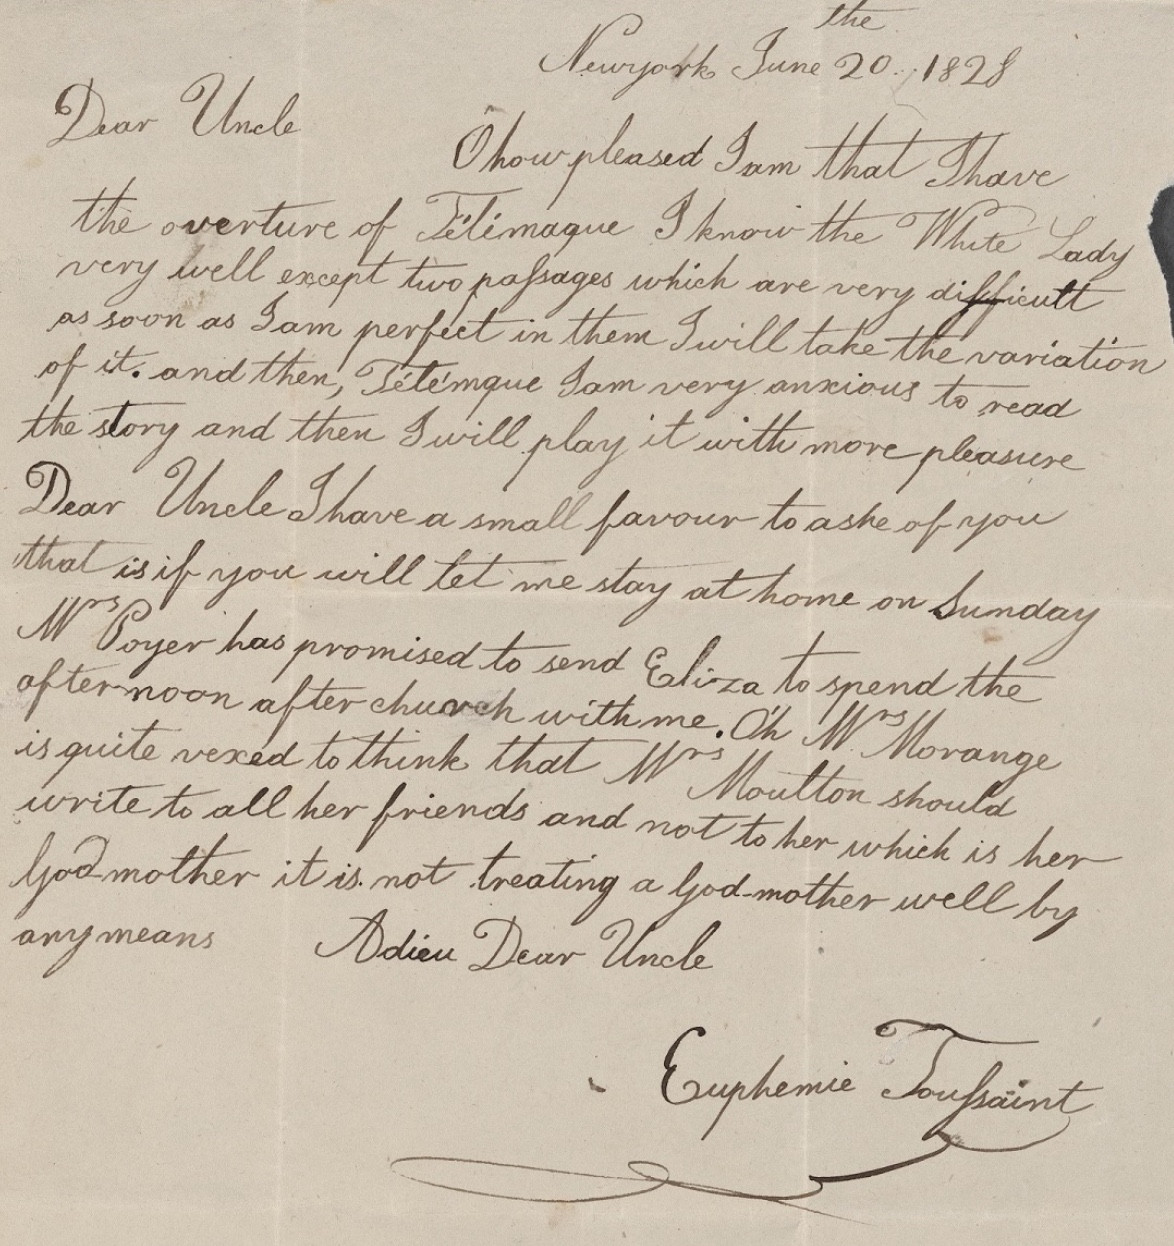 Newyork June 20the 1828
Dear Uncle
O how pleased I am that I have
the overture of Télémaque I know the White Lady
very well except two paſsages which are very difficult
as soon as I am perfect in them I will take the variation
of it. and then, Télémque I am very anxious to read
the story and then I will play it with more pleasure
Dear Uncle I have a small favour to aske of you
that is if you will let me stay at home on Sunday
Mrs Poyer has promised to send Eliza to spend the
afternoon after church with me. Oh Mrs Morange
is quite vexed to think that Mrs Moulton should
write to all her friends and not to her which is her
God mother it is not treating a God-mother well by
any means Adieu Dear Uncle
Euphemie Touſsaint